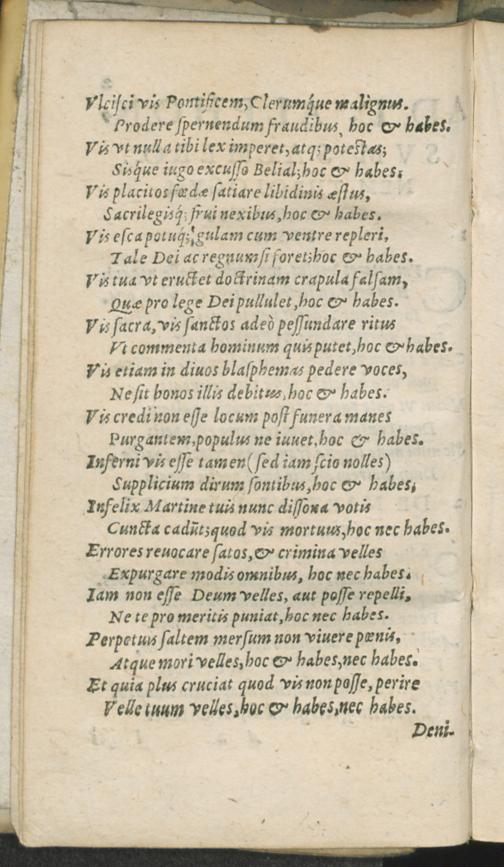 Vlcisci vis Pontificem, Clerumq́ue malignus.
Prodere spernendum fraudibus, hoc & habes.
Vis vt nulla tibi lex imperet, atq; potestas;
Sisq́ue iugo excusso Belial; hoc & habes.
Vis placitos fœdæ satiare libidinis æstus,
Sacrilegisq́; frui nexibus, hoc & habes.
Vis esca potuq́; gulam cum ventre repleri,
Tale Dei ac regnum si foret; hoc & habes.
Vis tua vt eructet doctrinam crapula falsam,
Quæ pro lege Dei pullulet, hoc & habes.
Vis sacra, vis sanctos adeò pessundare ritus
Vt commenta hominum quis putet, hoc & habes.
Vis etiam in diuos blasphemas pedere voces,
Ne sit honos illis debitus, hoc & habes.
Vis credi non esse locum post funera manes
Purgantem, populus ne iuuet, hoc & habes.
Inferni vis esse tamen (sed iam scio nolles)
Supplicium dirum sontibus, hoc & habes,
Infelix Martine tuis nunc dissona votis
Cuncta cadũt; quod vis mortuus, hoc nec habes.
Errores reuocare satos, & crimina velles
Expurgare modis omnibus, hoc nec habes.
Iam non esse Deum velles, aut posse repelli,
Ne te pro meritis puniat, hoc nec habes.
Perpetuis saltem mersum non viuere pœnis,
Atque mori velles, hoc & habes, nec habes.
Et quia plus cruciat quod vis non posse, perire
Velle tuum velles, hoc & habes, nec habes.
Deni-